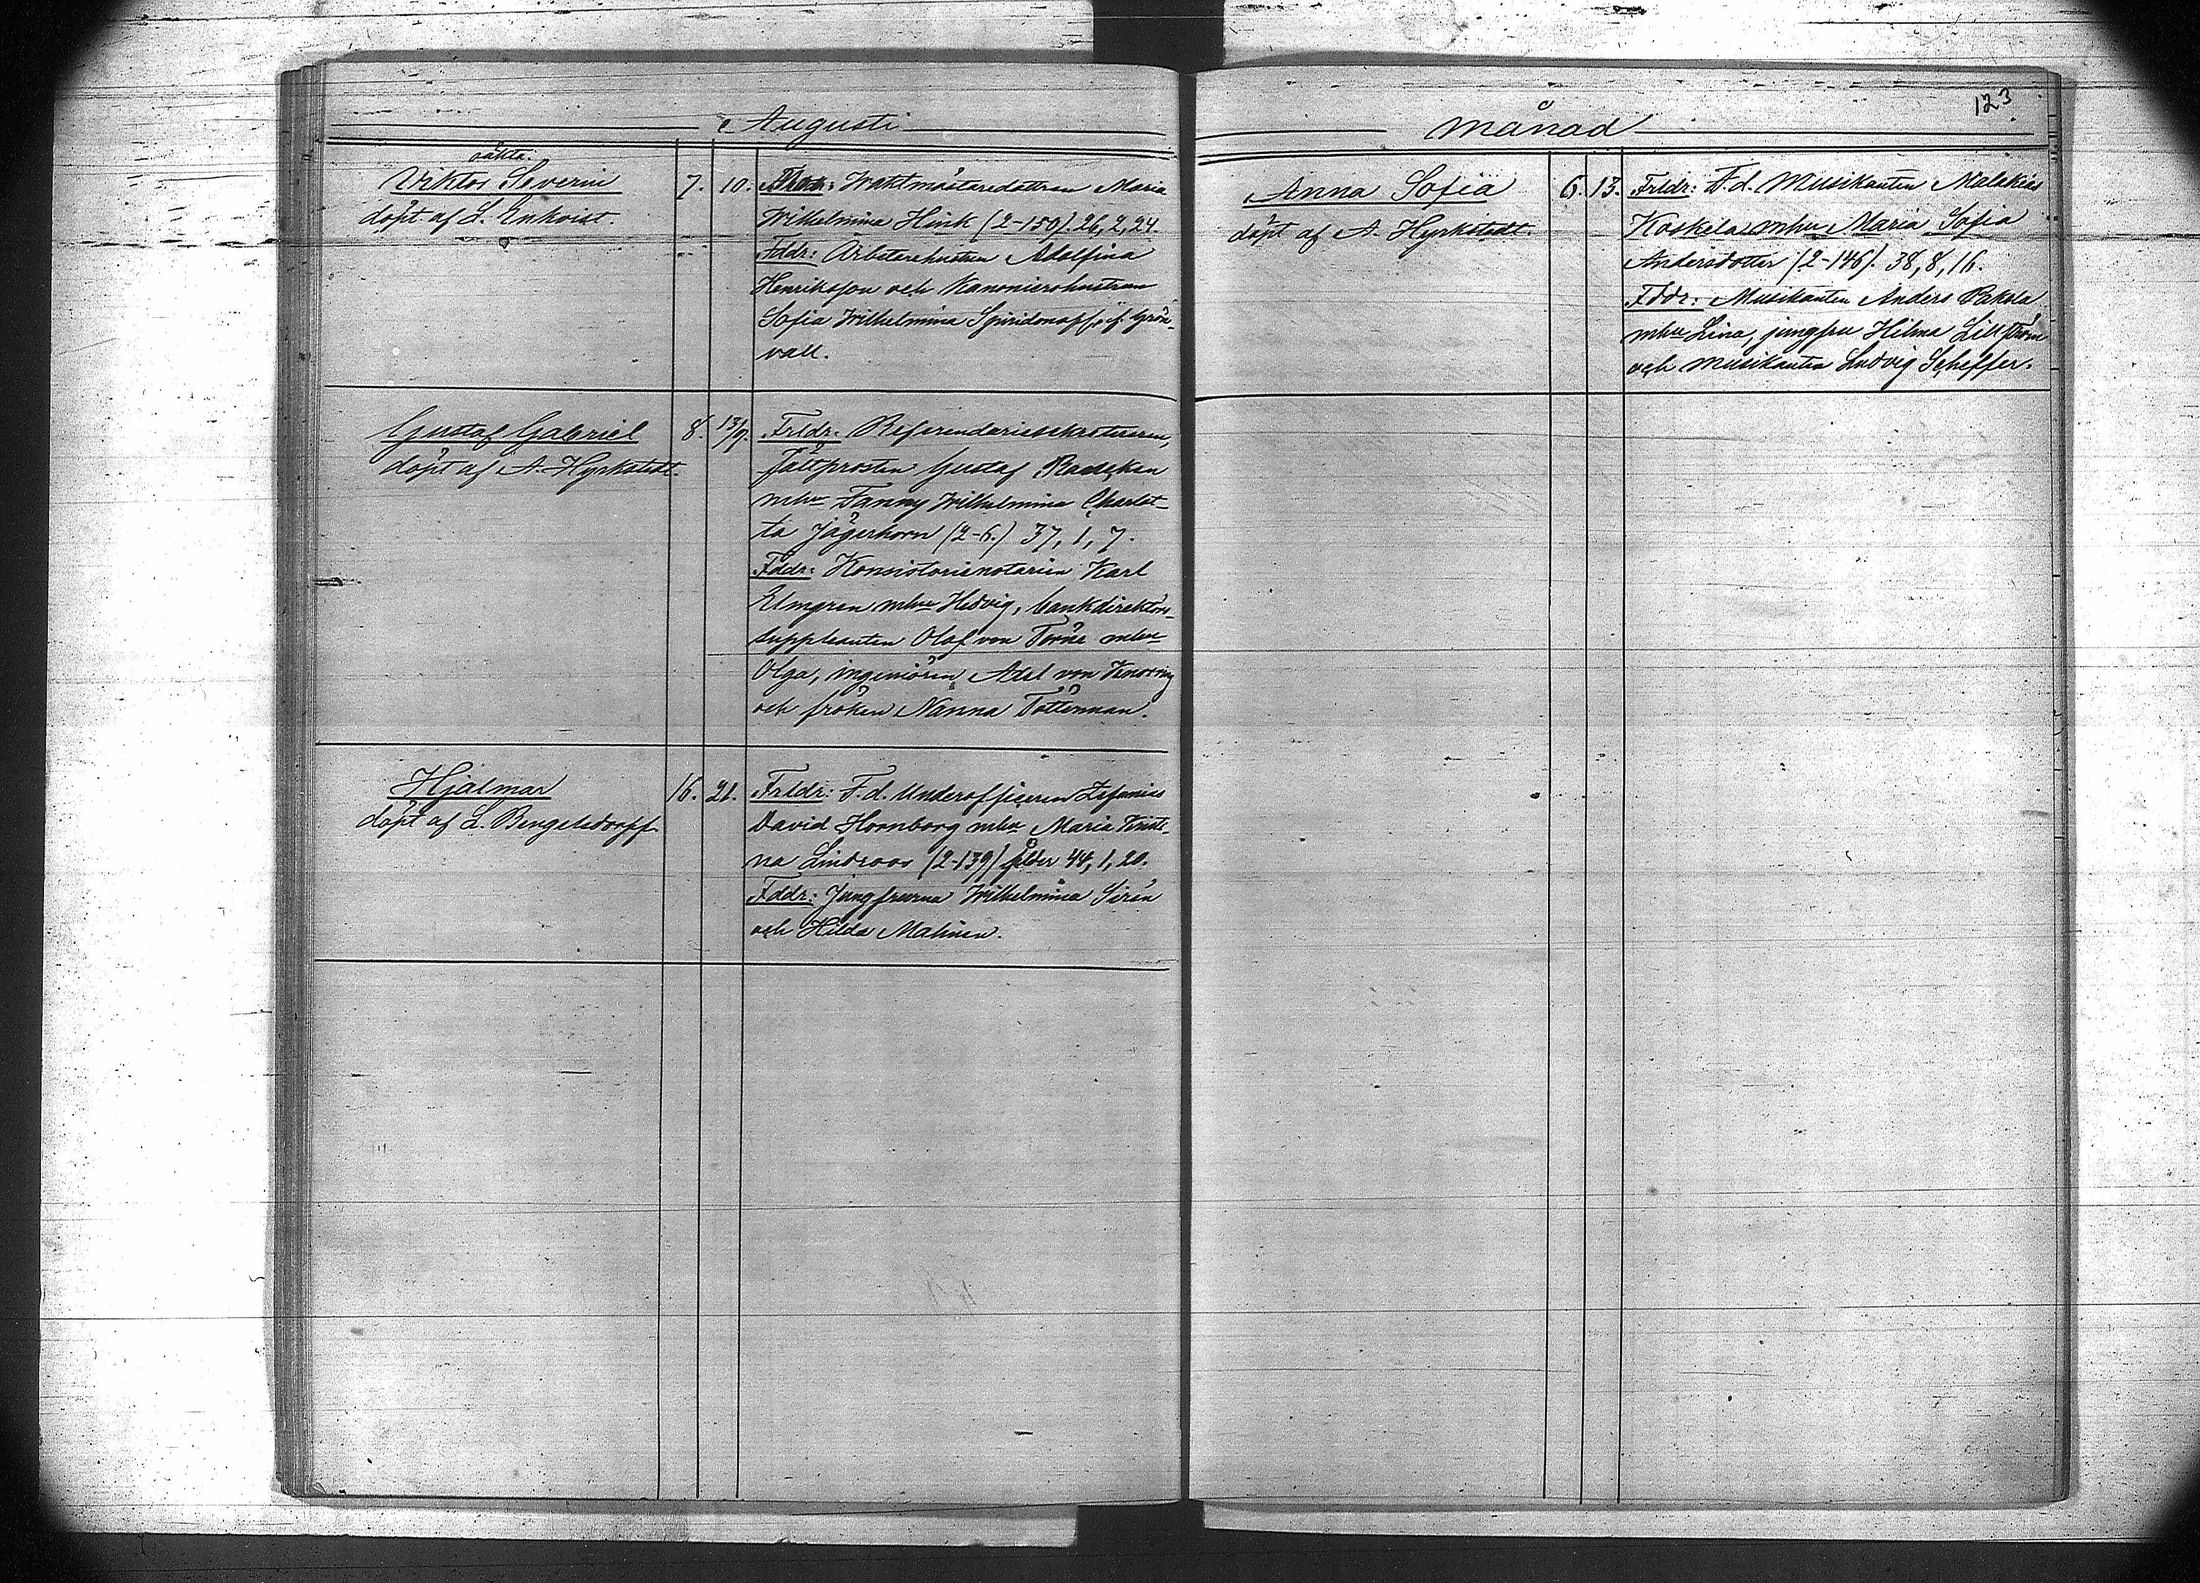 Augusti
oäkta.
Viktor Severin
döpt af L. Enkvist.
7. 10.
Waktmästaredottren Maria
Wilhelmina Hink (2-150). 26, 2, 24.
Fddr: Arbetarehustrun Adolfina
Henriksson och Kanoniershustrun
Sofia Wilhelmina Spiridonoff, f. Grön-
vall.
Gustaf Gabriel
döpt af A. Hyrkstedt.
8. 13/9.
Frldr: Referendariesekreteraren,
Fältprosten Gustaf
mhu Fanny Wilhelmina Charlot-
ta Jägerhorn (2-6.) 37, 1, 7.
Fddr: Konsistorienotarien Karl
Elmgren mhu Hedvig, bankdirektörs-
suppleanten Olof von Törne mhu
Olga, ingeniören Axel von Knorring
och fröken Nanna Tötterman.
Hjalmar
döpt af L. Bengelsdorff
16. 21.
Frldr: F. d. Underofficeren Zefanias
David Hornborg mhu Maria Kristi-
na Lindroos (2-139) ålder 44, 1, 20.
Fddr: Jungfrurna Wilhelmina Sirén
och Hilda Malinen.
månad
123
Anna Sofia
döpt af A. Hyrkstedt.
6. 13.
Frldr: F. d. Musikanten Malakias
Koskela mhu Maria Sofia
Andersdotter (2-146). 38, 8, 16.
Fddr: Musikanten Anders Pakola
mhu Lina, jungfru Hilma Lillström
och musikanten Ludvig Scheffer.